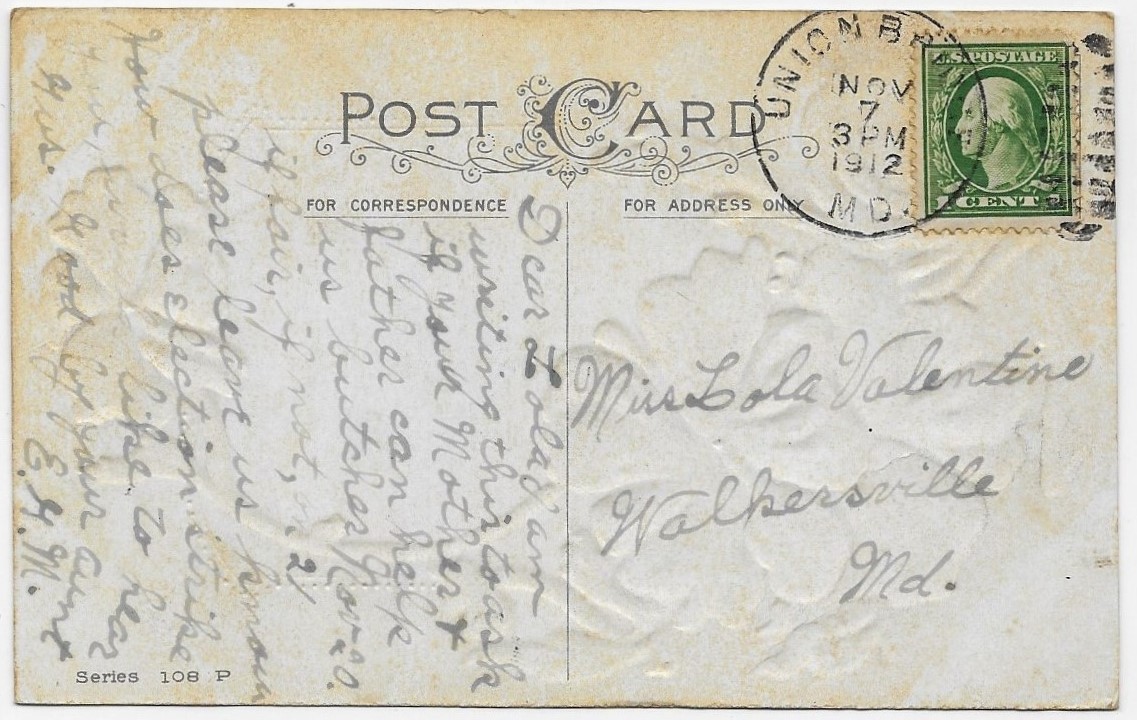 POST CARD
FOR CORRESPONDENCE
FOR ADDRESS ONLY
UNION B
NOV
7
3 PM
1912
MD.
U.S. POSTAGE
1 CENT 1
Dear Lola I am
writing this to ask
if your Mother &
father can help
us butcher Nov 20.
if fair, if not, on 21
please leave us know
how does election strike
like to hear
Gus. Good by your aunt
E. G. M.
Miss Lola Valentine
Walkersville
Md.
Series 108 P